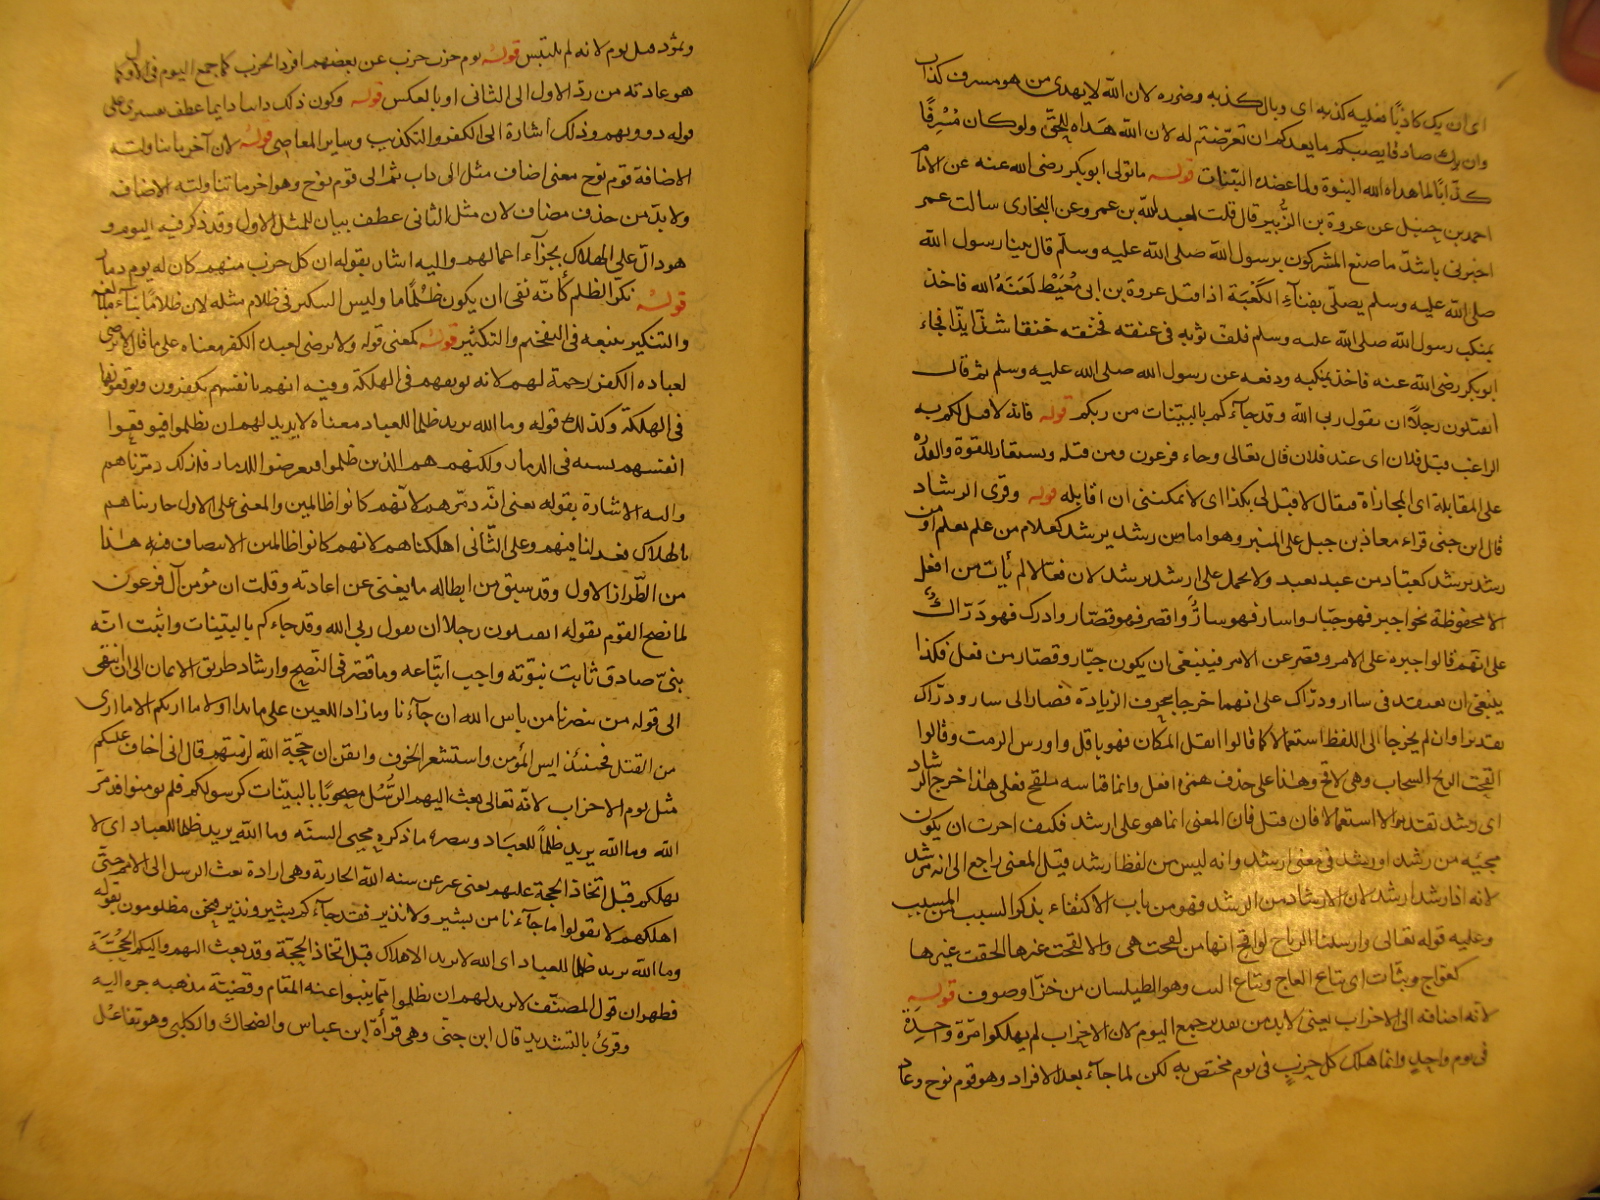 اى ان يك كاذبًا فعليه كذبه اى وبال كذبه وضرره لان الله لا يهدى من هو مسرف كذاب
وان يك صادقا يصبكم ما يعدكم ان تعرّضتم له لان الله هداه للحقّ ولو كان مُسْرِفًا
كذّابًا لما هداه الله للنبوة ولما عضده بالبيّنات قوله ما تولى ابو بكر رضى الله عنه عن الامام
احمد بن حنبل عن عروة بن الزُّبير قال قلت لعبد الله بن عمرو وعن البخارى سالت عمر
اخبرنى باشدّ ما صنع المشركون برسول الله صلى الله عليه وسلم قال بينا رسول الله
صلى الله عليه وسلم يصلّى بفنآءِ الكَعْبَة اذا قبل عروة بن ابى مُعَيْط لَعَنَهُ الله فاخذ
بمنكب رسول الله صلى الله عليه وسلم فلف ثوبه فى عنقه فخنقه خنقا شدّايدًا فجاء
ابو بكر رضى الله عنه فاخذ بمنكبه ودفعه عن رسول الله صلى الله عليه وسلم ثم قال
اتقتلون رجلاً ان يقول ربى الله وقد جآءكم بالبيّنات من ربكم قوله فانه لا قبل لكم به
الراغب قبل فلان اى عند فلان قال تعالى وجاء فرعون ومن قبله ويستعار للقوة والقدره
على المقابلة اى المجازاة فيقال لا قبل لى بكذا اى لا يمكننى ان اقابله قوله وقرى الرشاد
قال ابن جنى قراء معاذ بن جبل على المنبر وهو اما من رشد يرشد كعلام من علم يعلم او من
رشد يرشد كعبّاد من عبد يعبد ولا يحمل على ارشد يرشد لان فعّالا لم يأت من افعل
الا محفوظة نحو اجبر فهو جبّار واسار فهو سارٌ واقصر فهو قصّار وادرك فهو دَرّاكٌ
على انّهم قالوا جبره على الامر وقصر عن الامر فينبغى ان يكون جبّار وقصّار من فعل فكذا
ينبغى ان يعتقد فى سار ودرّاك على انهما خرجا بحروف الزيادة فصار الى سار ودرّاك
تقديرا وان لم يخرجا الى اللفظ استعمالا كما قالوا ابقل المكان فهو باقل واورس الرمث وقالوا
القحت الريح السحاب وهى لاقح وهذا على حذف همزة افعل وانما قياسه ملقح فعلى هذا خرج الرشاد
اى رشد تقديرا لا استعمالا فان قيل فان المعنى انما هو على ارشد فكيف اجزت ان يكون
مجيّه من رشد او رشد فى معنى ارشد وانه ليس من لفظ ارشد قيل المعنى راجع الى انه مرشد
لانه اذا رشد ارشد لان الارشاد من الرشد فهو من باب الاكتفاء بذكر السبب من المسبب
وعليه قوله تعالى وارسلنا الرياح لواقح انها من لقحت هى والا لقحت غيرها القحت غيرها
كعوّاج وبتّات اى بتايع العاج وبتاع البت وهو الطيلسان من خزّ او صوف قوله
لانه اضافه الى الاحزاب يعنى لا بد من تقدير جمع اليوم لان الاحزاب لم يهلكوا مرّة وَاحِدَةً
فى يوم واحدٍ وانما هلك كل حزبٍ فى يوم مختص به لكن لما جآء بعد الافراد وهو قوم نوح وعاد
وثمود قبل يوم لانه لم يلتبس قوله يوم حزب حزب عن بعضهم افرد الحزب كما جمع اليوم فى الاول كما
هو عادته من ردّ الاول الى الثانى او بالعكس قوله وكون ذلك دابا دايما عطف تفسيرى على
قوله دؤوبهم وذلك اشارة الى الكفر والتكذيب وساير المعاصى قوله لان آخر ما تناولته
الاضافة قوم نوح معنى اضاف مثل الى داب ثم الى قوم نوح وهو اخر ما تناولته الاضافه
ولا بدّ من حذف مضاف لان مثل الثانى عطف بيان للمثل الاول وقد ذكر فيه اليوم و
هو دالّ على الهلاك بجزآء اعمالهم واليه اشار بقوله ان كل حزب منهم كان له يوم دمار
قوله نكّر الظلم كأنّه نفى ان يكون ظلمًا ما وليس التنكير فى ظلام مثله لان ظلامًا بنآء مبالغه
والتنكير يتبعه فى التفخيم والتكثير قوله كمعنى قوله ولا يرضى لعباده الكفر معناه على ما قال لا يرضى
لعباده الكفر رحمة لهم لانه يوقعهم فى الهلكة وفيه انهم بانفسهم يكفرون ويوقعونها
فى الهلكة وكذلك قوله وما الله يريد ظلما للعباد معناه لا يريد لهم ان يظلموا فيوقعوا
انفسهم بسببه فى الدمار ولكنهم هم الذين ظلموا فتعرضوا للدمار فلذلك دمّرناهم
واليه الاشارة بقوله يعنى انّه دمّرهم لانّهم كانوا ظالمين والمعنى على الاول جازيناهم
بالهلاك فعدلنا فيهم وعلى الثّانى اهلكناهم لانهم كانوا ظالمين الانتصاف فيه هذا
من الطّراز الاول وقد سبق من ابطاله ما يغنى عن اعادته وقلت ان مؤمن آل فرعون
لما نصح القوم بقوله اتقتلون رجلا ان يقول ربى الله وقد جاءكم بالبيّنات واثبت انّه
نبىّ صادق ثابت نبوّته واجب اتباعه وما قصّر فى النّصح وارشاد طريق الايمان الى ان انتهى
الى قوله من ينصرنا من باس الله ان جآءنا وما زاد اللعين على ما بدا اولا ما اريكم الا ما ارى
من القتل فحينئذ ايس المؤمن واستشعر الخوف وايقن ان حجّة الله لزمتهم قال انى اخاف عليكم
مثل يوم الاحزاب لانّه تعالى بعث اليهم الرسُل مصحوبًا بالبيّنات كرسولكم فلم يومنوا فدمّر
الله وما الله يريد ظلماً للعبَاد وينصره ما ذكره محيى السنّه وما الله يريد ظلما للعباد اى لا
يهلكهم قبل اتخاذ الحجة عليهم يعنى عبر عن سنه الله الجارية وهى ارادة بعث الرسل الى الامم حتّى
اهلكهم لا يقولوا ما جآءنا من بشير ولا نذير فقد جآءكم بشير ونذير فنحن مظلومون بقوله
وما الله يريد ظلما للعباد اى الله لا يريد الاهلاك قبل اتخاذ الحجّة وقد بعث اليهم واليكم الحُجّةَ
فظهر ان قول المصنّف لا يريد لهم ان يظلموا مما ينبو اعنه المقام وقضيّة مذهبه جره اليه
وقرئ بالتشديد قال ابن جنّى وهى قرأة ابن عباس والضحاك والكلبى وهو تفاعُل